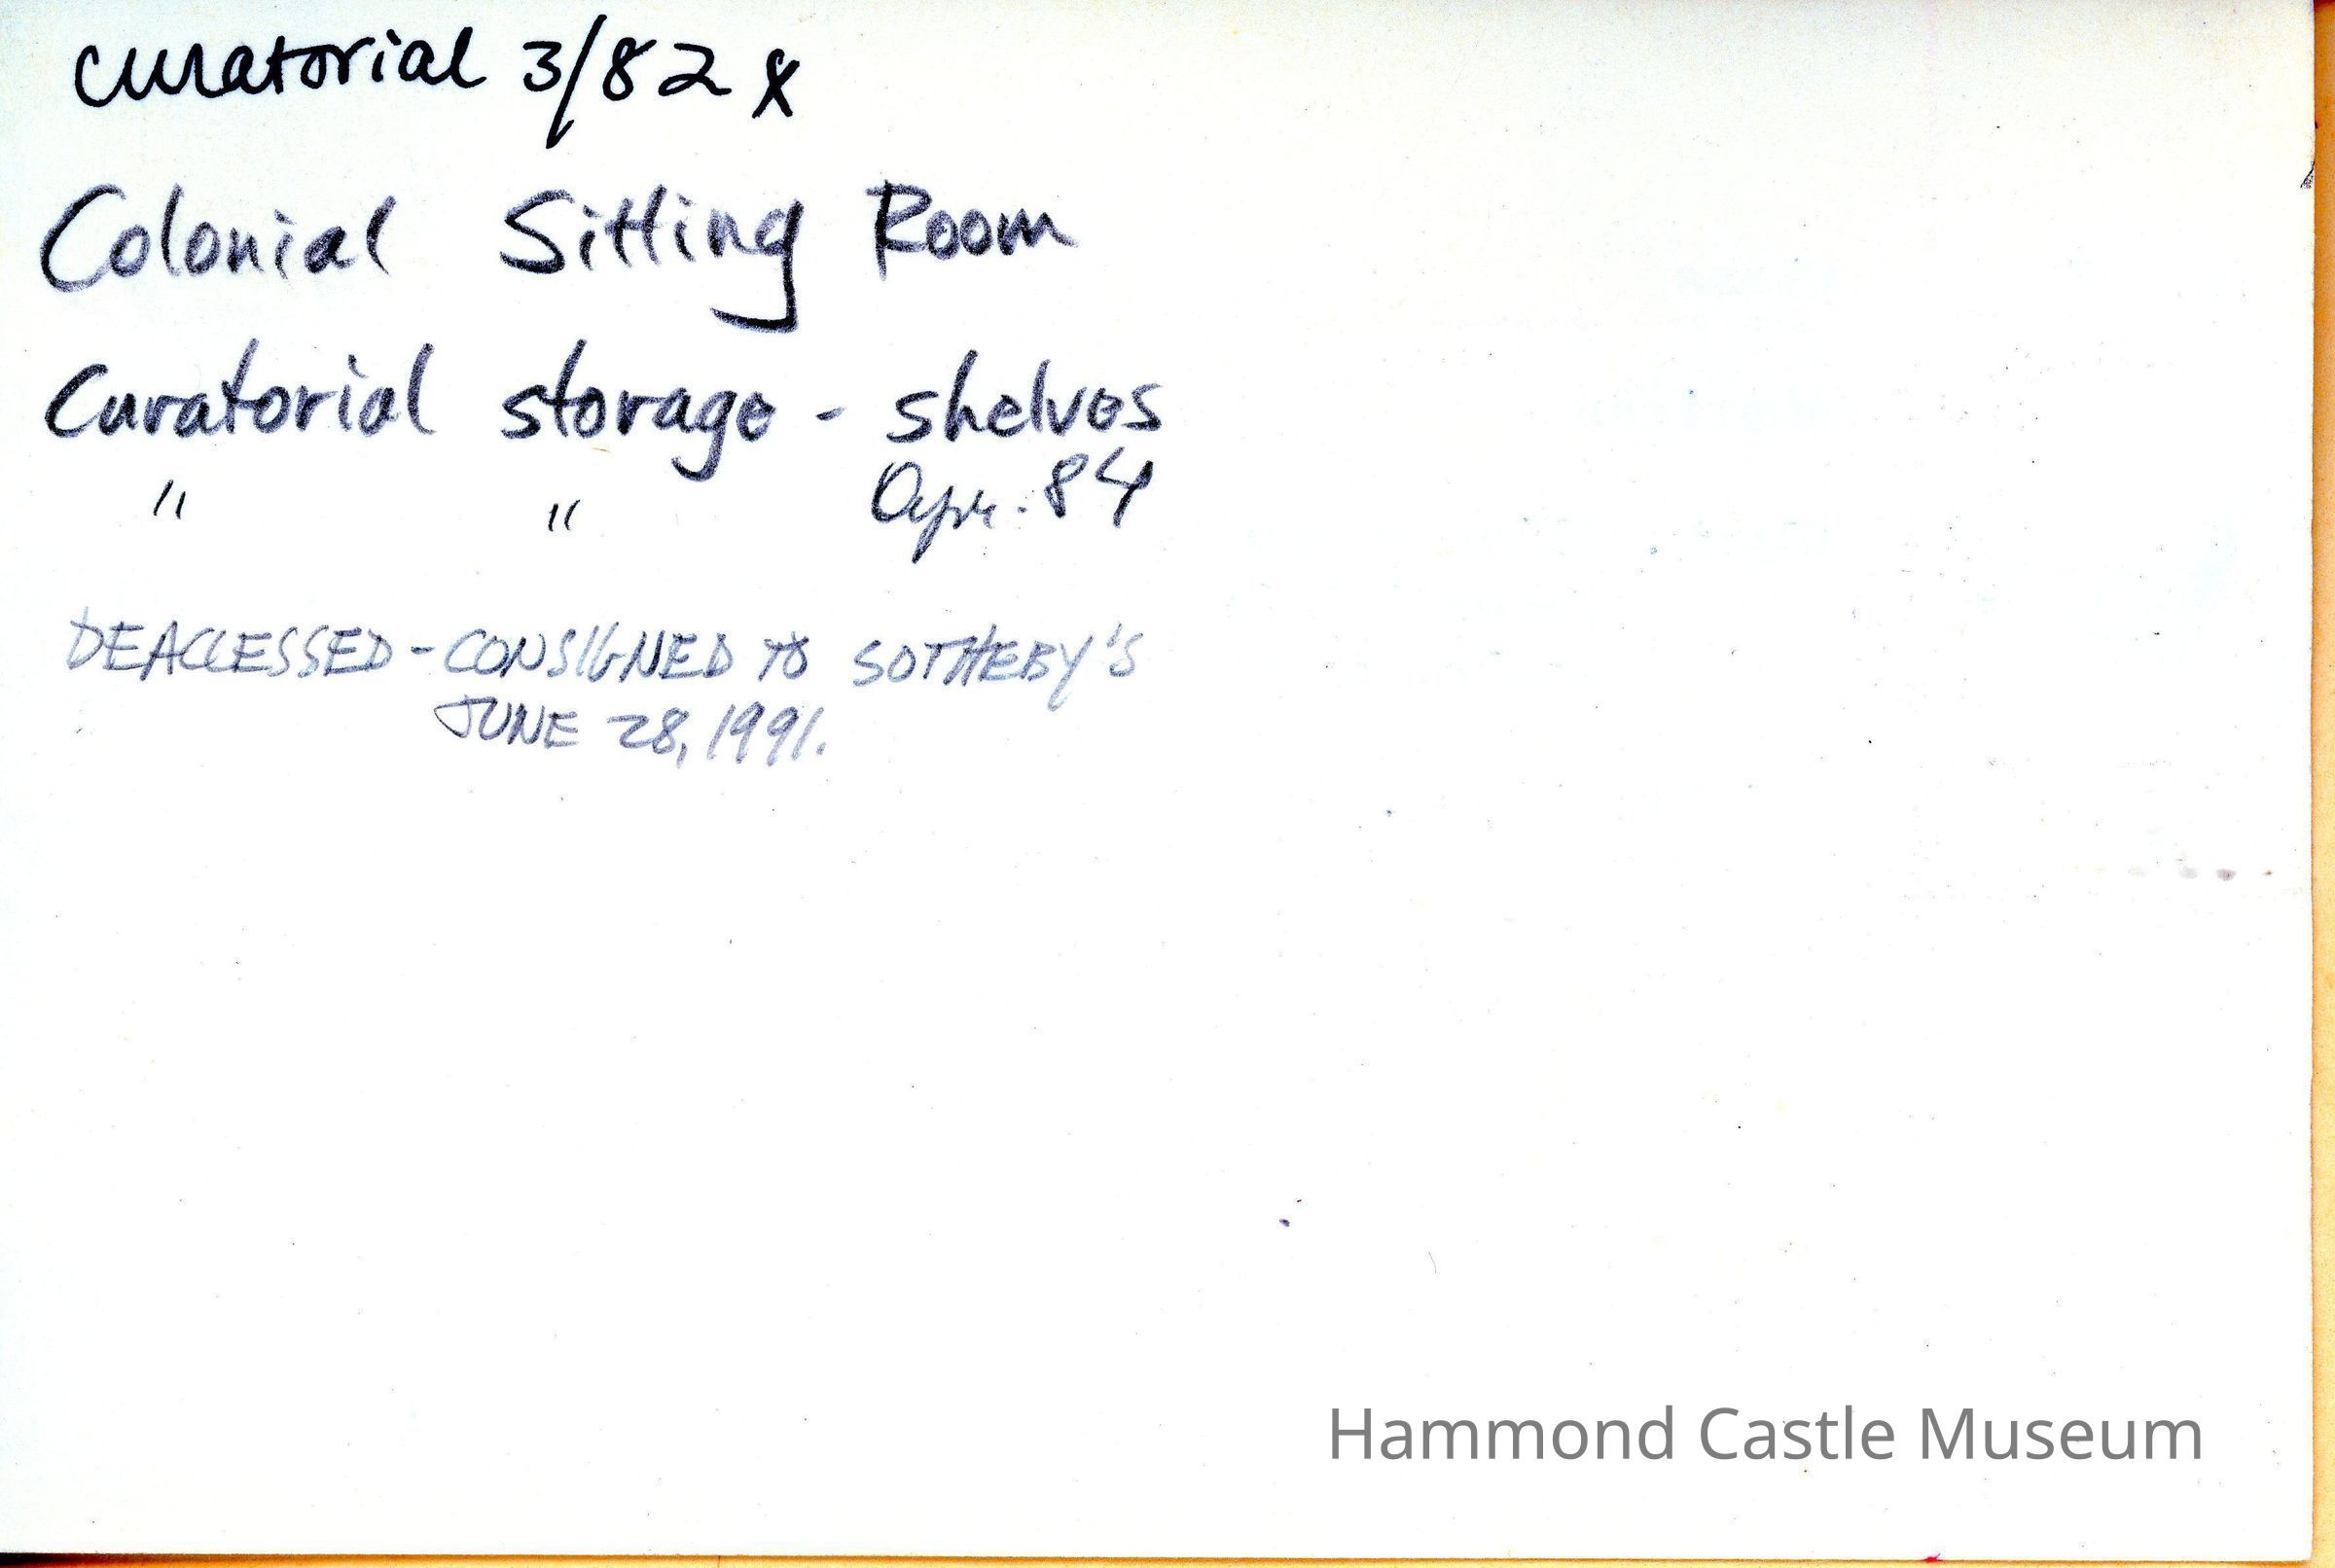 curatorial 3/82 x
Colonial Sitting Room
Curatorial storage - shelves
" " Apr. 84
DEACCESSED - CONSIGNED TO SOTHEBY'S
JUNE 28, 1991.
Hammond Castle Museum